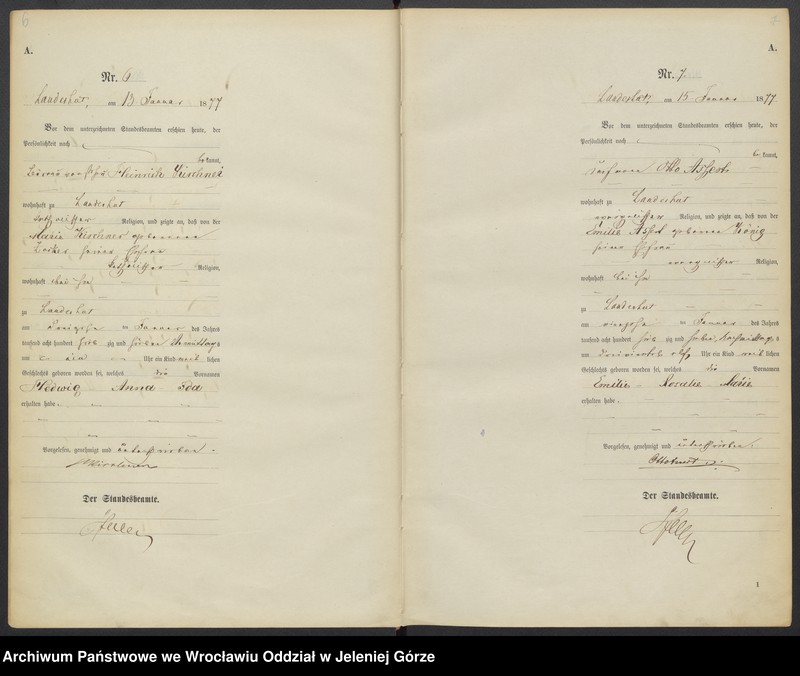 6
A.
Nr. 6
Landeshut, am 13 Januar 1877
Vor dem unterzeichneten Standesbeamten erschien heute, der
Persönlichkeit nach
be kannt,
Heinrich Kirchner
wohnhaft zu Landeshut
Religion, und zeigte an, daß von der
Marie Kirchner geborenen
seiner Ehefrau
Religion,
wohnhaft bei ihm
zu Landeshut
am Januar des Jahres
tausend acht hundert sieb zig und sieben Vormittags
um ein Uhr ein Kind weib lichen
Geschlechts geboren worden sei, welches die Vornamen
Hedwig Anna Ida
erhalten habe.
Vorgelesen, genehmigt und unterschrieben
Der Standesbeamte.
7
A.
Nr. 7
Landeshut, am 15 Januar 1877
Vor dem unterzeichneten Standesbeamten erschien heute, der
Persönlichkeit nach
be kannt,
Otto
wohnhaft zu Landeshut
evangelischer Religion, und zeigte an, daß von der
Emilie geborenen
seiner Ehefrau
evangelischer Religion,
wohnhaft bei ihm
zu Landeshut
am vierzehn Januar des Jahres
tausend acht hundert sieb zig und sieben Nachmittags
um dreiviertel elf Uhr ein Kind weib lichen
Geschlechts geboren worden sei, welches die Vornamen
Emilie Rosalie Marie
erhalten habe.
Vorgelesen, genehmigt und unterschrieben.
Der Standesbeamte.
1
Archiwum Państwowe we Wrocławiu Oddział w Jeleniej Górze